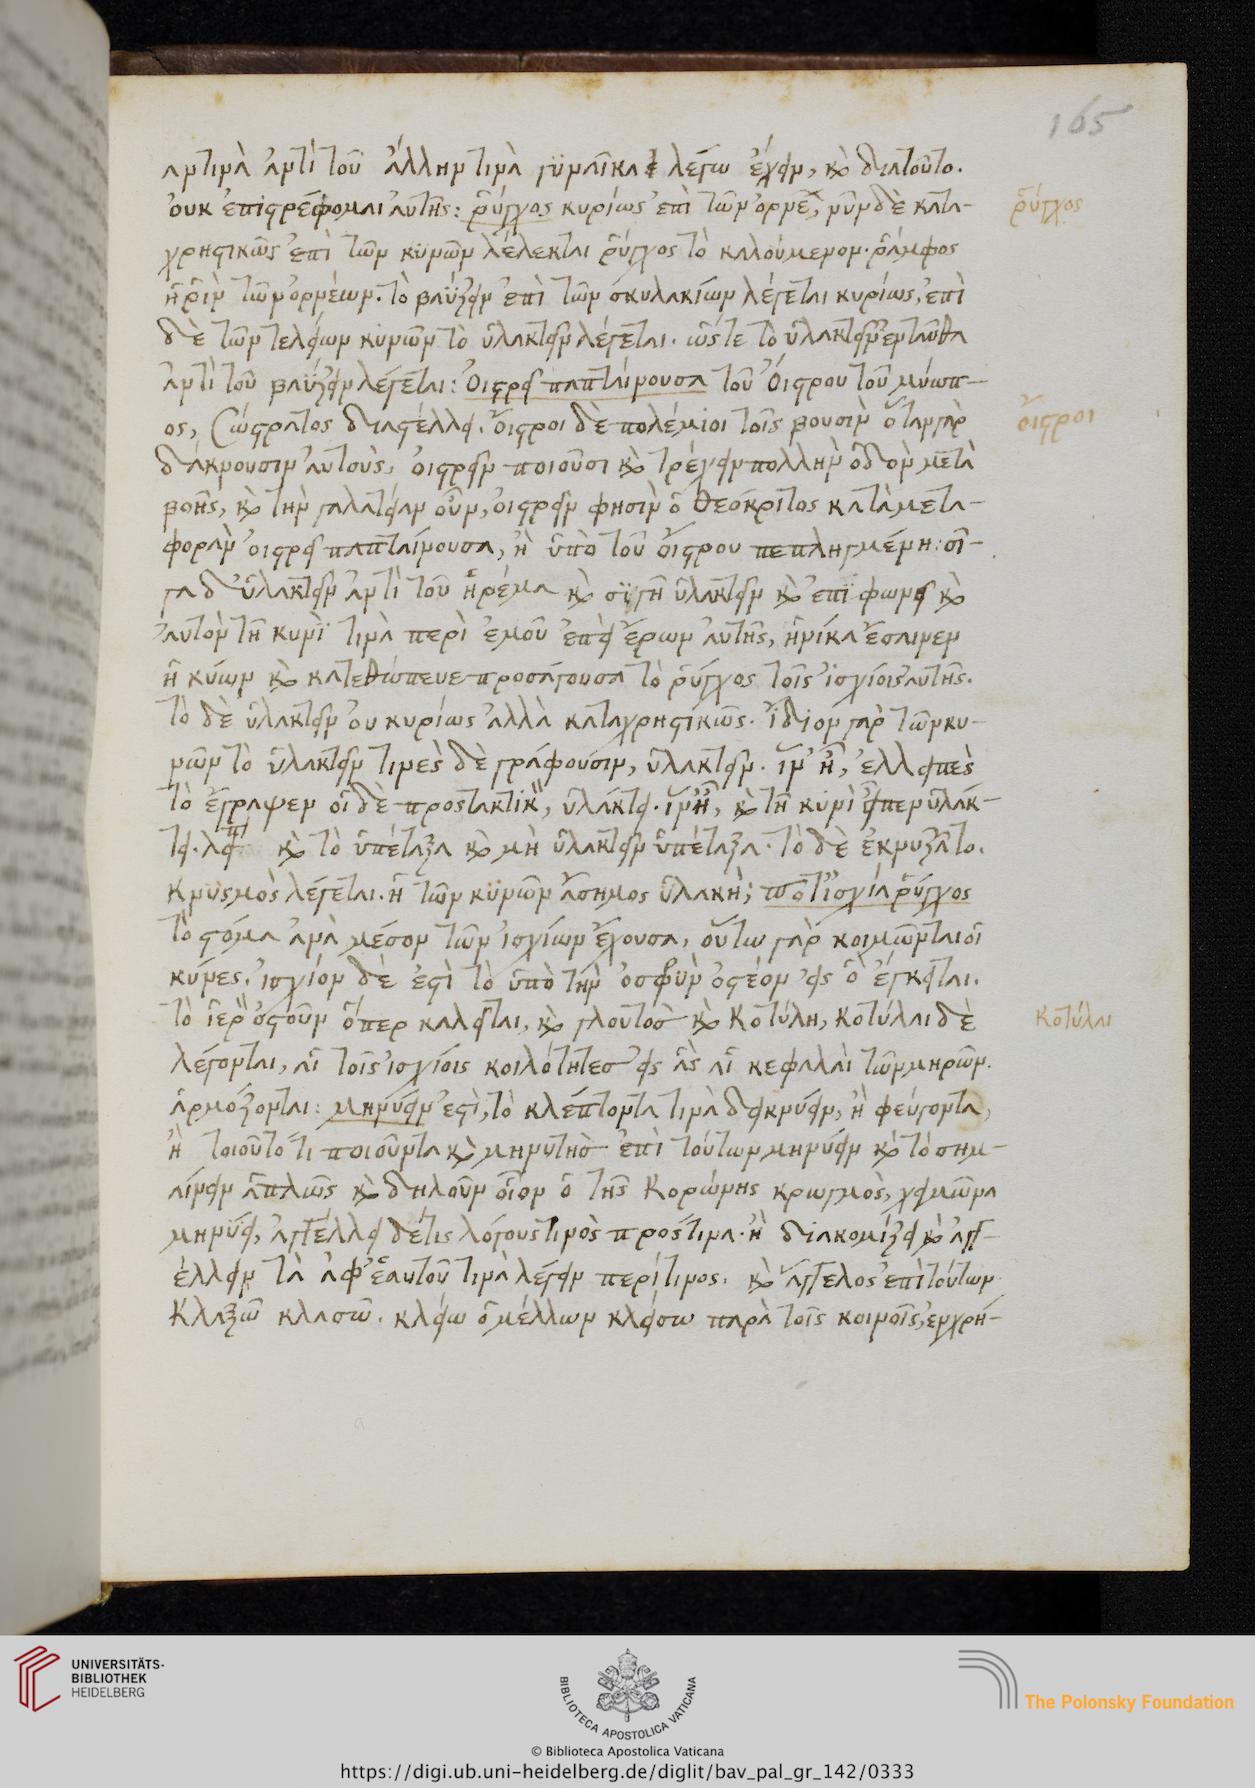 165
αντινὰ ἀντὶ τοῦ ἄλλην τινὰ γϋναῖκα λέγω ἔχειν, καὶ διατοῦτο.
ὀυκ ἐπιστρέφομαι ἀυτῆς: ῥύγχος κυρίως ἐπὶ τῶν ὀρνέ, νῦν δὲ κατα-
ῥύγχος
χρηστικῶς ἐπὶ τῶν κϋνῶν λέλεκται ῥύγχος τὸ καλούμενον. ῥάμφος
ἢ ῥὶν τῶν ὀρνέων. τὸ βαΰζειν ἐπὶ τῶν σκυλακίων λέγεται κυρίως, ἐπὶ
δὲ τῶν τελείων κυνῶν τὸ ὑλακτεῖν λέγεται. ὥστε τὸ ὑλακτεῖν ἐνταῦθα
ἀντὶ τοῦ βαΰζειν λέγεται: Ὀιστρεῖ παπταίνουσα τοῦ Ὀίστρου τοῦ μύωπ-
ος, Σώστρατος διαστέλλει. οἶστροι δὲ πολέμιοι τοῖς βουσὶν ὅταν γὰρ
οἶστροι
δάκνουσιν ἀυτοὺς, ὀιστρεῖν ποιοῦσι καὶ τρέχειν πολλὴν ὁδὸν μετὰ
βοῆς, καὶ τὴν γαλατείαν οὖν, ὀιστρεῖν φησὶν ὁ Θεόκριτος κατὰ μετα-
φορὰν ὀιστρεῖ παπταίνουσα, ἢ ὑπὸ τοῦ οἴστρου πεπληγμένη: σῖ-
γα δ' ὑλακτεῖν ἀντὶ τοῦ ἠρέμα καὶ σϊγῆ ὑλακτεῖν καὶ ἐπϊφωνεῖ καὶ
ἀυτὸν τῆ κυνῒ τινὰ περὶ ἐμοῦ ἐπεὶ ἔρων ἀυτῆς, ἡνίκα ἔσαινεν
ἡ κύων καὶ κατεθώπευε προσάγουσα τὸ ῥύγχος τοῖς ἰσχίοις ἀυτῆς.
τὸ δὲ ὑλακτεῖν ὀυ κυρίως ἀλλὰ καταχρηστικῶς. ἴδιον γὰρ τῶν κυ-
νῶν τὸ ὑλακτεῖν τινὲς δὲ γράφουσιν, ὑλακτεῖν. ἵν' ἦ, ἐλλειπὲς
τὸ ἔγραψεν οἱ δὲ προστακτικ, ὑλάκτει. ἵν' ἦ, καὶ τῆ κυνὶ εἶπερ ὑλάκ-
τει. λειπ καὶ τὸ ὑπέταξα καὶ μὴ ὑλακτεῖν ὑπέταξα. τὸ δὲ ἐκνυζᾶτο.
Κνυσμὸς λέγεται. ἡ τῶν κϋνῶν ἄσημος ὑλακὴ; ποτ' ἰσχία ῥύγχος
τὸ στόμα ἀνὰ μέσον τῶν ἰσχίων ἔχουσα, οὕτω γὰρ κοιμῶνται οἱ
κύνες. ἰσχίον δὲ ἐστὶ τὸ ὑπὸ τὴν ὀσφὺν ὀστέον εἰς ὃ ἔγκειται.
τὸ ἱερ ὀστοῦν ὅπερ καλεῖται, καὶ γλουτοσ καὶ Κοτύλη, Κοτύλαι δὲ
Κοτύλαι
λέγονται, αἱ τοῖς ἰσχίοις κοιλότητεσ εἰς ἃς αἱ κεφαλαὶ τῶν μηρῶν.
ἁρμόζονται: μηνύειν ἐστὶ, τὸ κλέπτοντα τινὰ δεικνύειν, ἢ φεύγοντα,
ἢ τοιοῦτό τι ποιοῦντα καὶ μηνυτὴσ ἐπὶ τούτων μηνύειν καὶ τὸ σημ-
αίνειν ἁπλῶς καὶ δηλοῦν οἷον ὁ τῆς Κορώνης κρωγμὸς, χειμῶνα
μηνύει, ἀγγέλλει δέ τις λόγους τινὸς πρός τινα. ἢ διακομίζει καὶ ἀγγ-
έλλειν τὰ ἀφ' ἑαυτοῦ τινὰ λέγειν περί τινος. καὶ ἄγγελος ἐπὶ τούτων
Κλαξῶ κλασῶ. κλείω ὁ μέλλων κλείσω παρὰ τοῖς κοινοῖς, ἐν χρή-
UNIVERSITÄTS-
BIBLIOTHEK
HEIDELBERG
BIBLIOTECA APOSTOLICA VATICANA
The Polonsky Foundation
© Biblioteca Apostolica Vaticana
https://digi.ub.uni-heidelberg.de/diglit/bav_pal_gr_142/0333